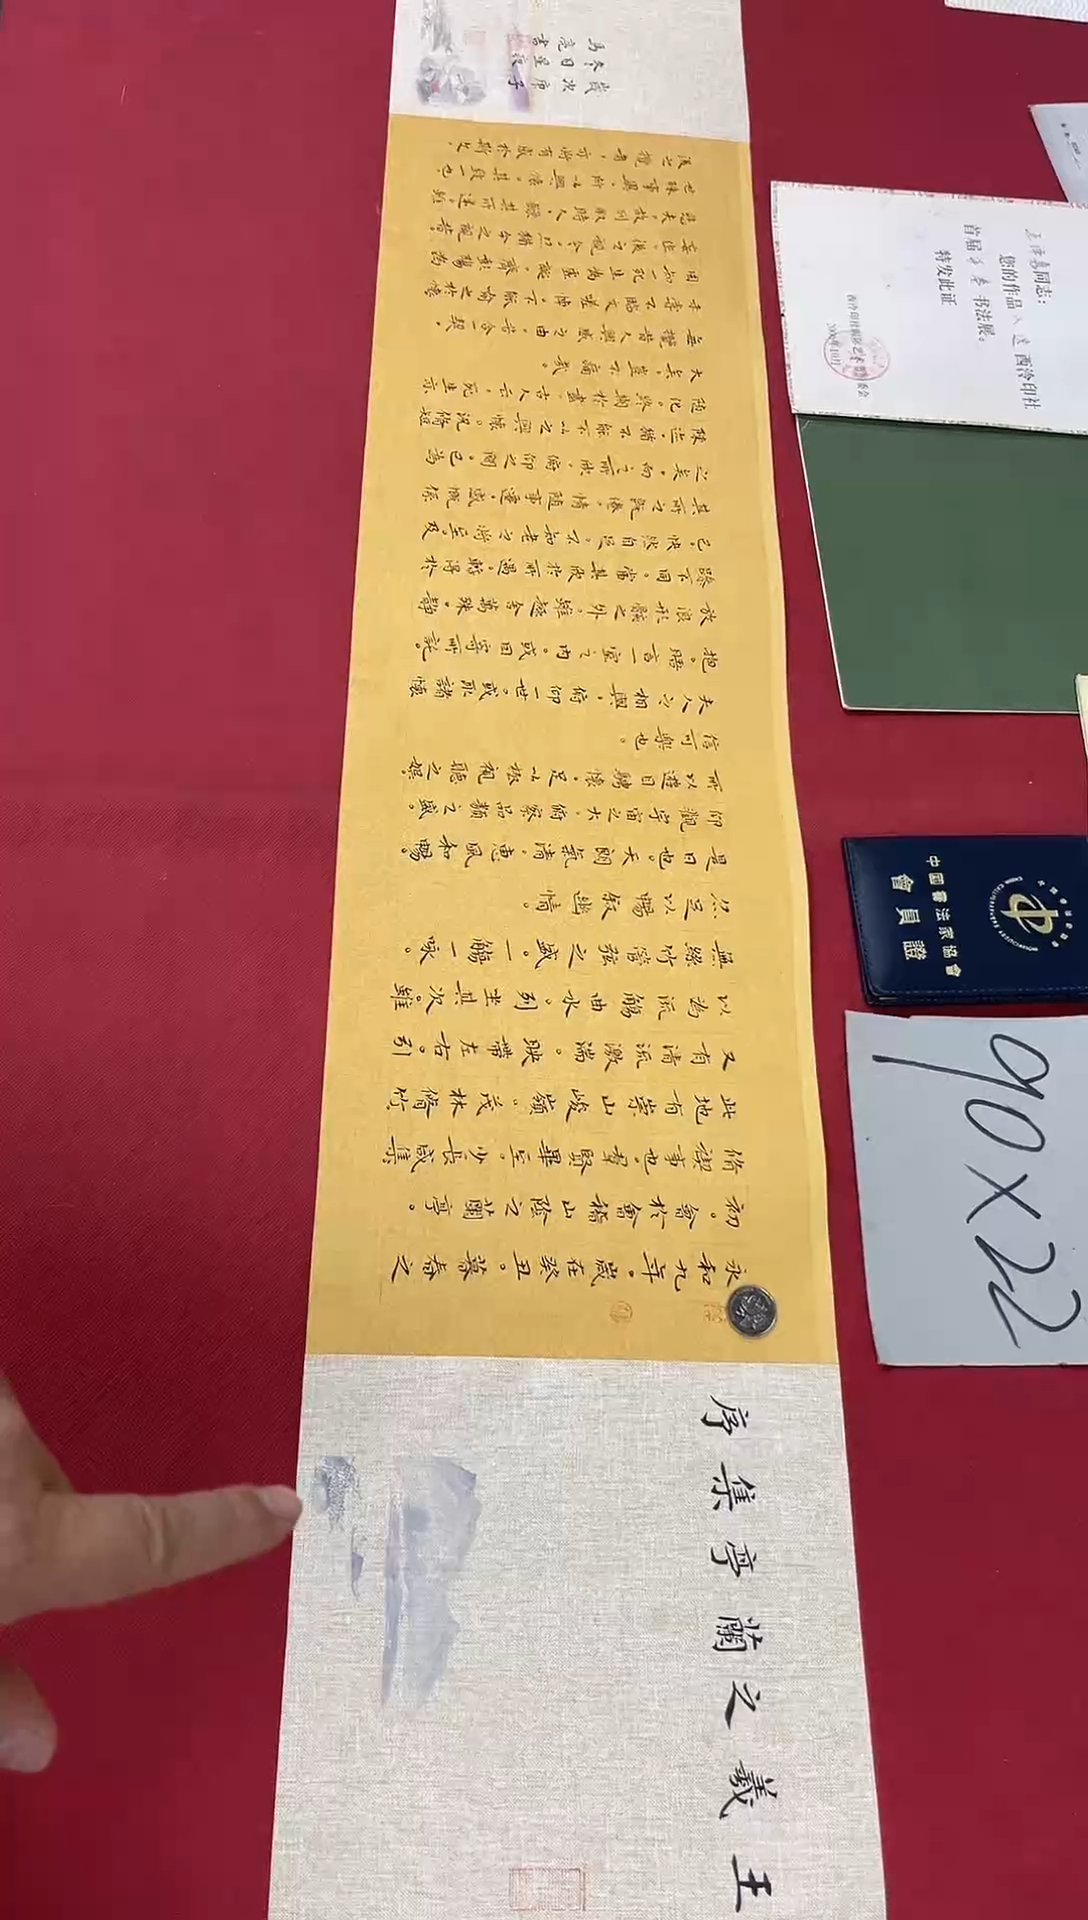 王羲之蘭亭集序
永和九年。歲在癸丑。暮春之
初。會於會稽山陰之蘭亭。
脩禊事也。羣賢畢至。少長咸集
此地有崇山峻嶺。茂林脩竹
又有清流激湍。映帶左右。引
以為流觴曲水。列坐其次。雖
無絲竹管弦之盛。一觴一咏。
亦足以暢敘幽情。
是日也。天朗氣清。惠風和暢。
仰觀宇宙之大。俯察品類之盛
所以遊目騁懷。足以極視聽之娛
信可樂也。
夫人之相與。俯仰一世。或取諸懷
抱。晤言一室之內。或因寄所託。
放浪形骸之外。雖趣舍萬殊。靜
躁不同。當其欣於所遇。暫得於
己。快然自足。不知老之將至。及
其所之既倦。情隨事遷。感慨係
之矣。向之所欣。俯仰之間。已為
陳迹。猶不能不以之興懷。況脩短
隨化。終期於盡。古人云。死生亦
大矣。豈不痛哉。
每攬昔人興感之由。若合一契。
未嘗不臨文嗟悼。不能喻之於懷
固知一死生為虛誕。齊彭殤為
妄作。後之視今。猶今之視昔。
悲夫。故列敘時人。錄其所述。雖
世殊事異。所以興懷。其致一也。
後之覽者。亦將有感於斯文。
歲次庚子
冬日星夜
馬亮書
同志:
您的作品入选西泠印社
首届手卷书法展。
特发此证
中國書法家協會
會員證
90×22